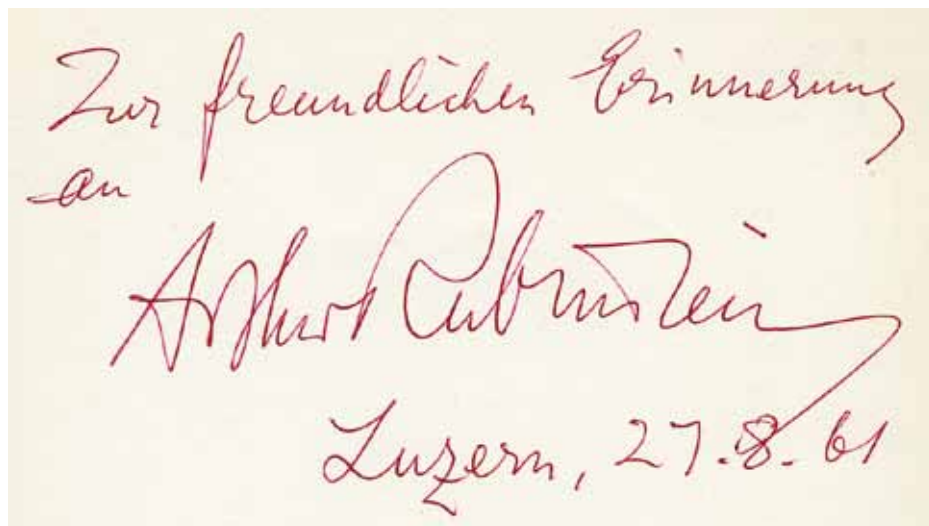 Zur freundlichen Erinnerung
an
Arthur Rubinstein
Luzern, 27.8.61